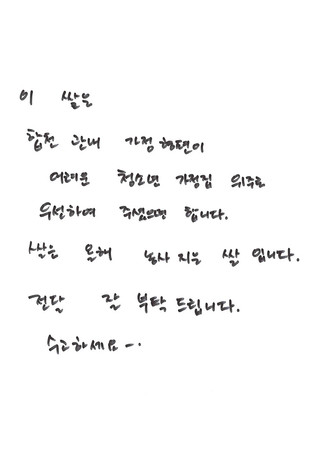 이 쌀은
합천 관내 가정형편이
어려운 청소년 가정집 위주로
우선하여 주셨으면 합니다.
쌀은 올해 농사 지은 쌀 입니다.
전달 잘 부탁 드립니다.
수고하세요-.